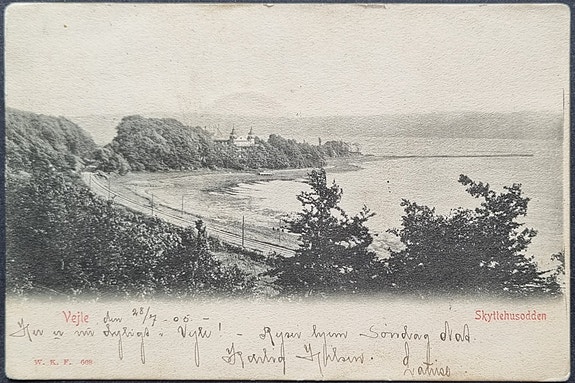 Vejle den 28/7 - 05. -
Skyttehusodden
Her er nu dejligt i Vejle! - Rejser hjem Søndag Nat.
Kærlig Hilsen.
W. K. F. 668